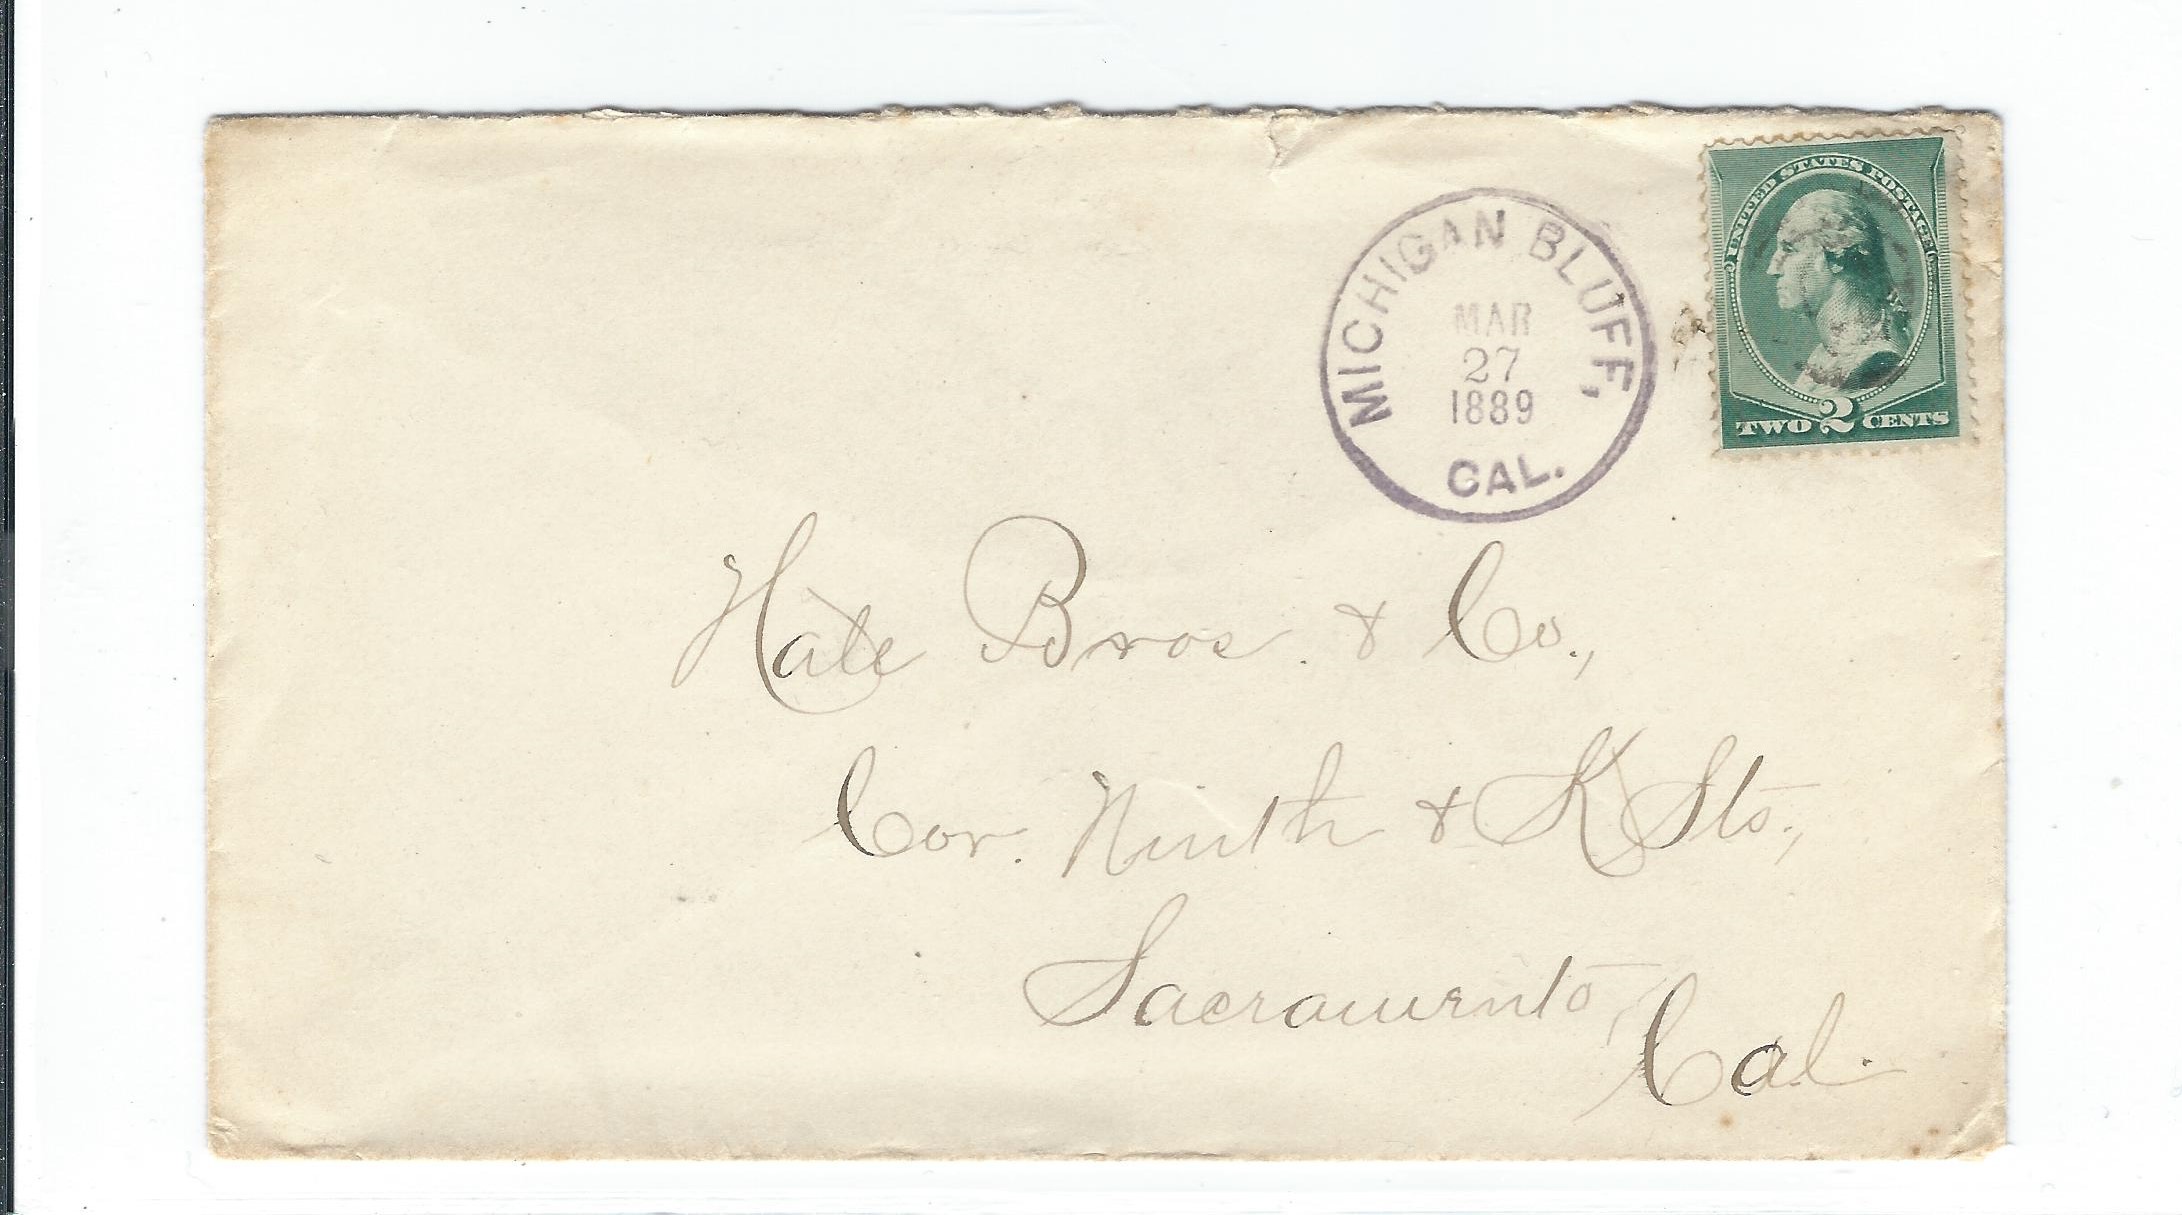 UNITED STATES POSTAGE
TWO 2 CENTS
MICHIGAN BLUFF,
MAR
27
1889
CAL.
Hale Bros. & Co.,
Cor. Ninth & K Sts.,
Sacramento,
Cal.